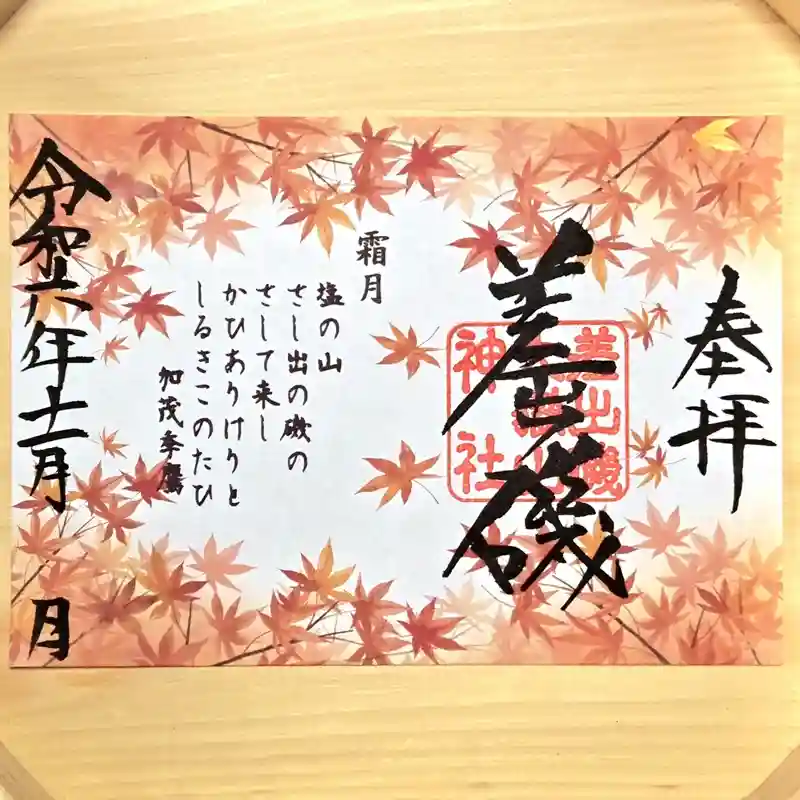 奉拝
差出磯
差出磯
神社
霜月
塩の山
さし出の磯の
さして来し
かひありけりと
しるさこのたひ
加茂季鷹
令和六年十一月
日